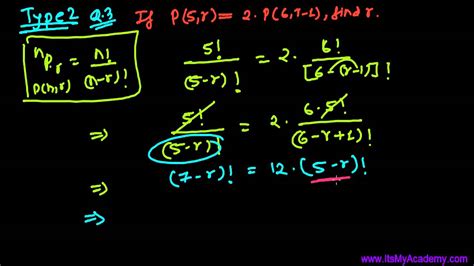 Type2 Q.3 If P(5,r) = 2. P(6,r-1), find r.
nPr = n!/(n-r)!
P(n,r)
5!/(5-r)! = 2. 6!/[6-(r-1)]!
⇒ 5!/(5-r)! = 2. 6.5!/(6-r+1)!
⇒ (7-r)! = 12.(5-r)!
⇒
www.ItsMyAcademy.com